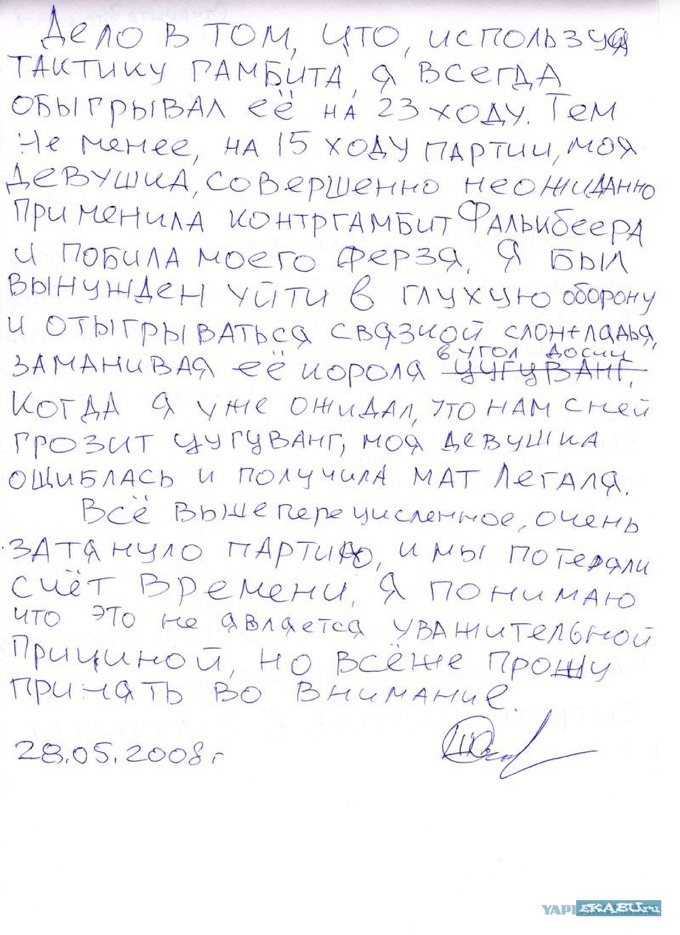 Дело в том, что, используя
тактику гамбита, я всегда
обыгрывал её на 23 ходу. Тем
не менее, на 15 ходу партии, моя
девушка, совершенно неожиданно
применила контргамбит Фалькбеера
и побила моего ферзя. Я был
вынужден уйти в глухую оборону
и отыгрываться связкой слон+ладья,
заманивая её короля в угол доски цугуванг.
Когда я уже ожидал, что нам с ней
грозит цугуванг, моя девушка
ошиблась и получила мат Легаля.
Всё вышеперечисленное, очень
затянуло партию, и мы потеряли
счёт времени. Я понимаю
что это не является уважительной
причиной, но всёже прошу
принять во внимание.
28.05.2008г
YAPI